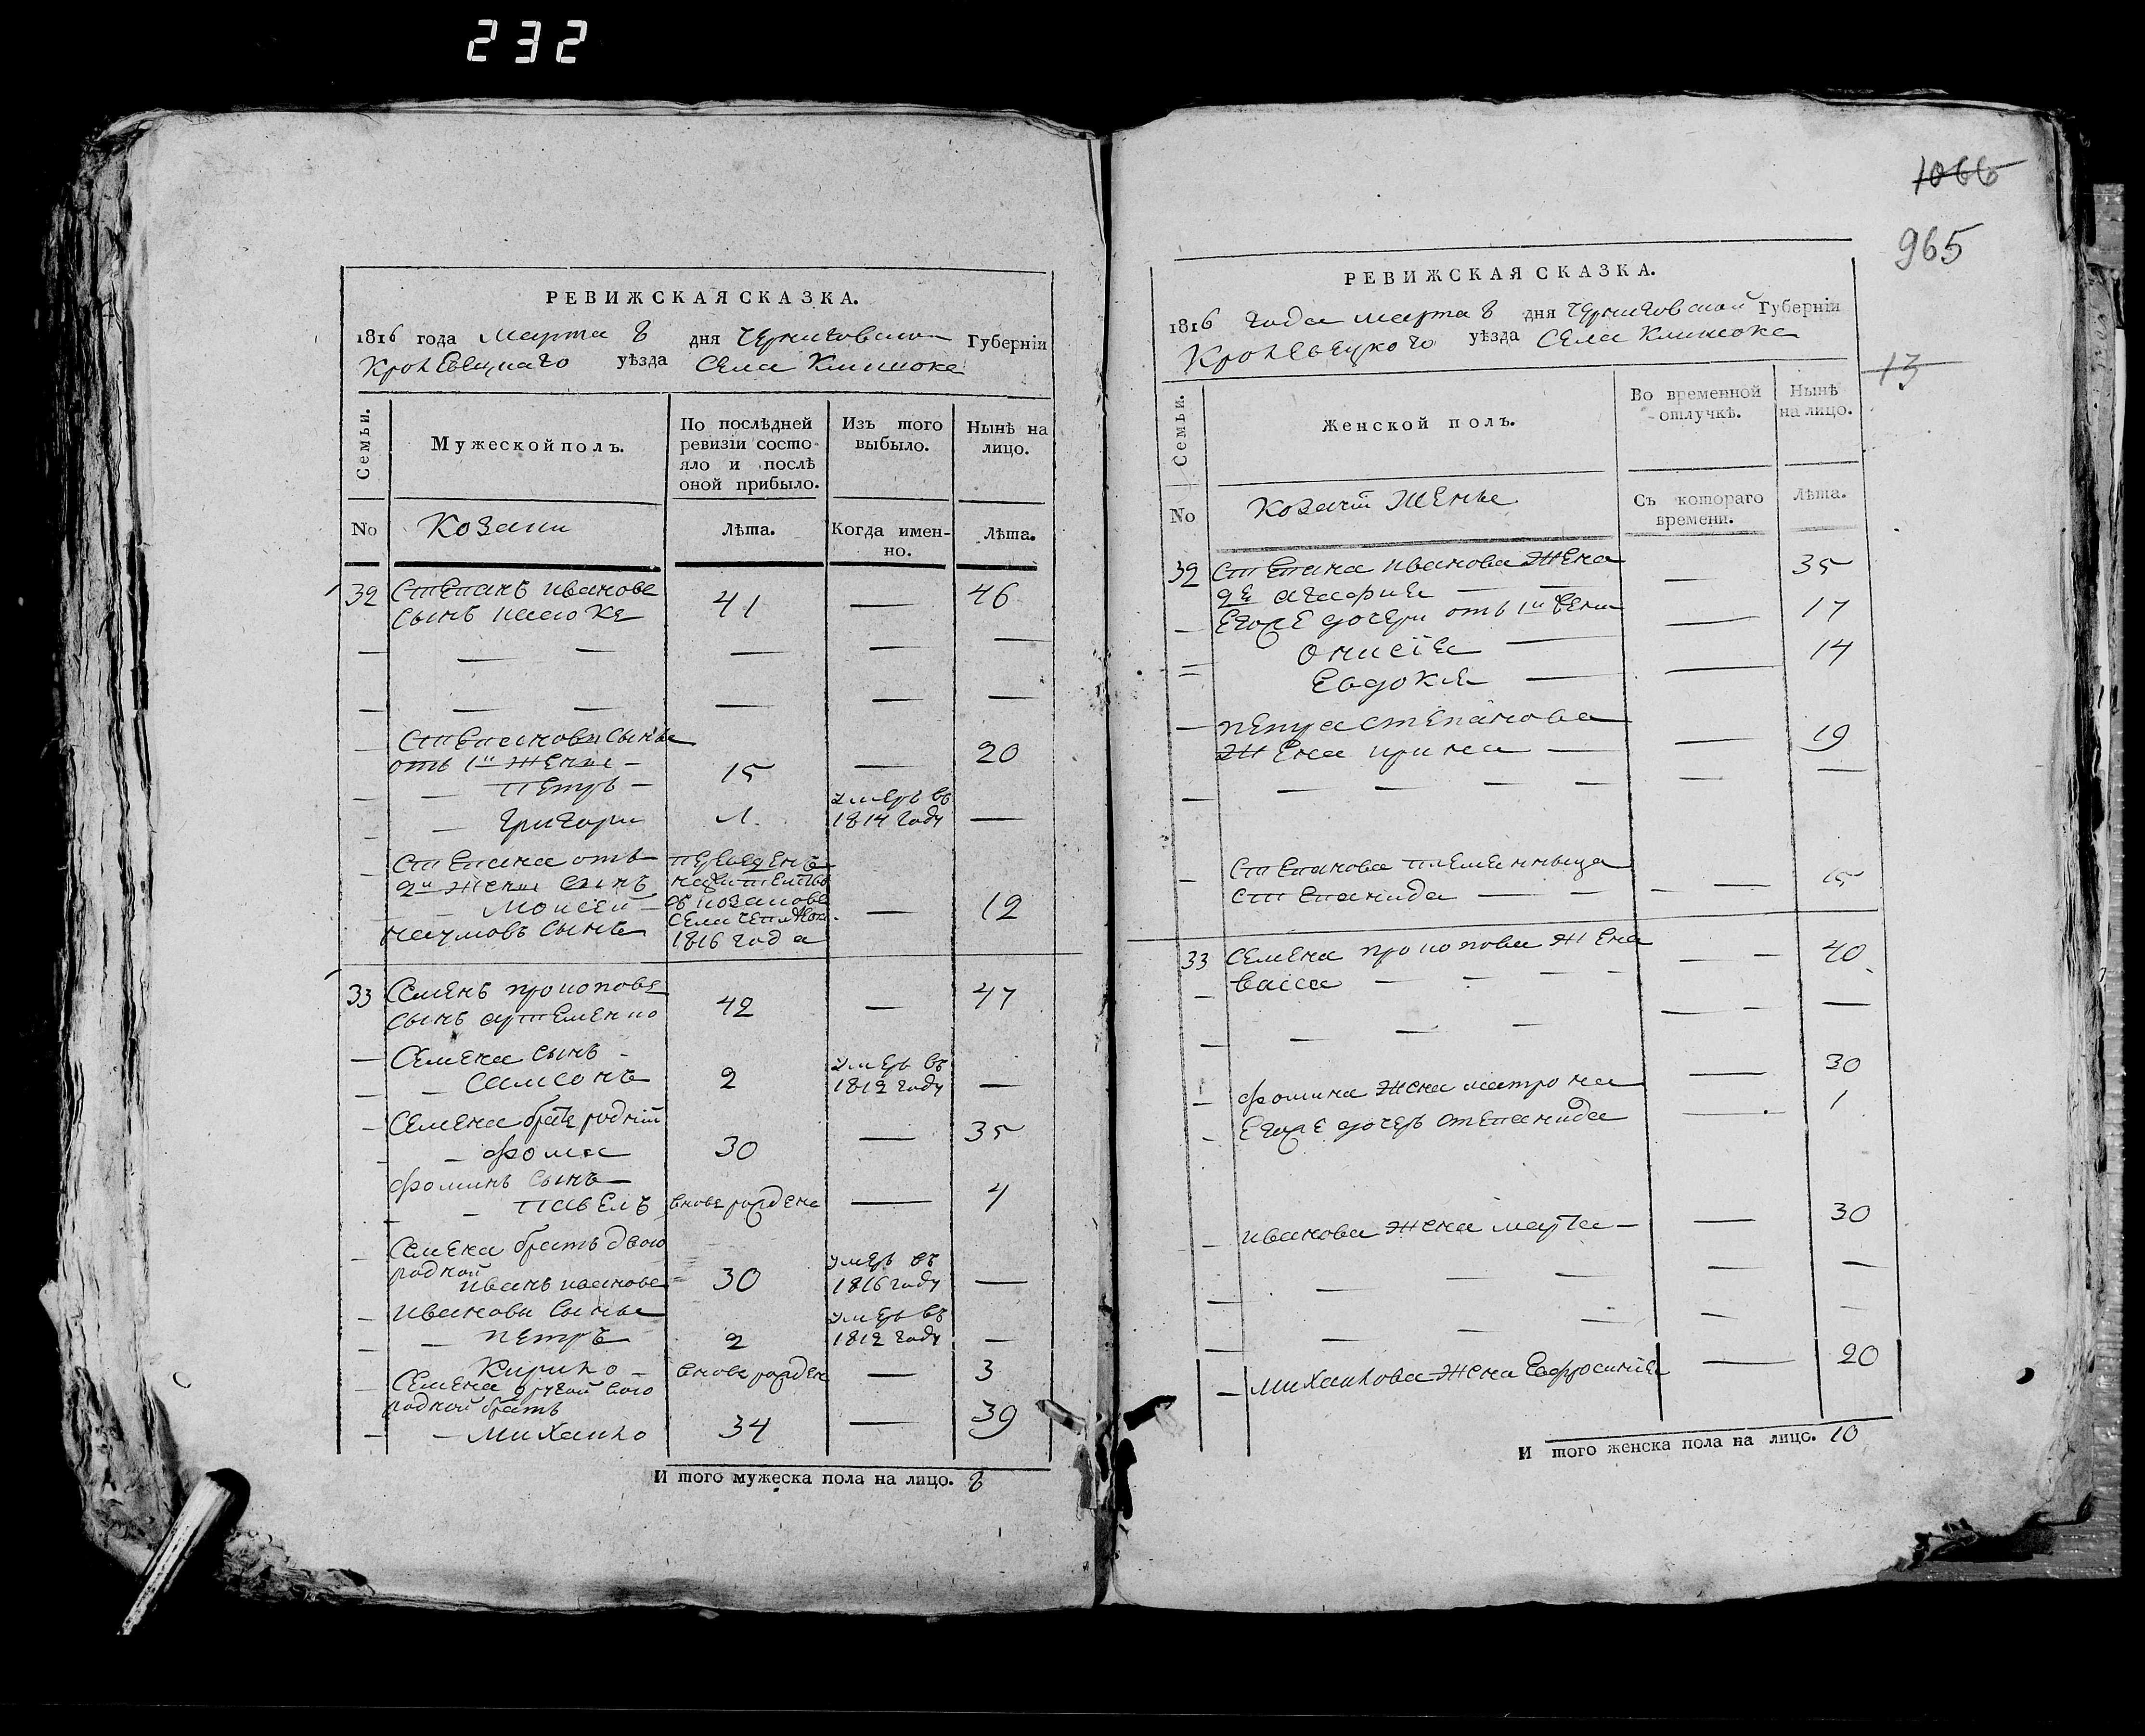 232
РЕВИЖСКАЯ СКАЗКА.
1816 года Марта 8 дня Черниговской Губерніи
Кролевецкаго уѣзда Села Клишокъ
Семьи.
Мужеской полъ.
По послѣдней ревизіи состояло и послѣ оной прибыло.
Изъ того выбыло.
Нынѣ на лицо.
No Козаки Лѣта. Когда именно. Лѣта.
32 Степанъ Ивановъ
сынъ 41 — 46
— — — — — —
— — — — — —
Степановы сынъе
отъ 1й жены –
Петръ – 15 — 20
— Григори умеръ въ
1814 году —
Степана отъ
2й жены сынъ
— Моисей —
Наумовъ сынъ
1816 года — 12
33 Семенъ Прокоповъ
сынъ Артеменко 42 — 47
Семена сынъ
— Самсонъ 2 умеръ въ
1812 году —
Семена братъ родній
— Фома 30 — 35
Фоминъ сынъ
— Павелъ вновь рожденъ — 4
Семена братъ двою
родной
Иванъ Ивановъ 30 умеръ въ
1816 году —
Ивановы сынъе
— Петръ 2 умеръ въ
1812 году —
Кирило – вновь рожден — 3
Семена другой двою
родной братъ
— Михайло 34 — 39
И того мужеска пола на лицо. 8
1066
965
13
РЕВИЖСКАЯ СКАЗКА.
1816 года марта 8 дня Черниговской Губерніи
Кролевецкого уѣзда Села Клишокъ
Семьи.
Женской полъ.
Во временной отлучкѣ.
Нынѣ на лицо.
No Козачій женъе Съ котораго времени. Лѣта.
32 Степана Иванова жена
2я Агафия — — 35
Егоже дочери отъ 1й жены
Онисія — — 17
Евдокия — — 14
Петра Степанова
жена Ирина — — 19
— — — — — —
Степанова племенныца
Степанида — — — 15
33 Семена Прокопова жена
Васса — — — 40
— — — — —
Фомина жена Матрона — 30
Егоже дочерь Степанида — 1
Иванова жена Марта — — 30
— — — — —
— — — — —
Михайлова жена Евфросиния — 20
И того женска пола на лицо. 10